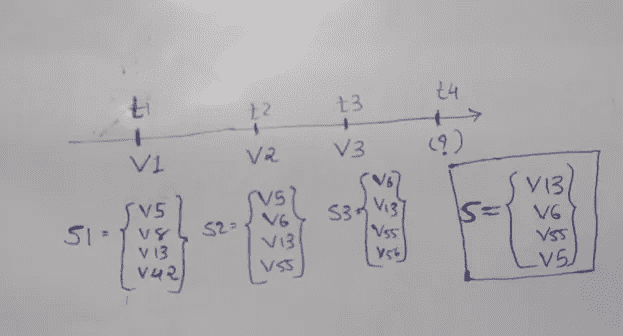 t1 t2 t3 t4
V1 V2 V3 (?)
S1 = { V5 V8 V13 V42 }
S2 = { V5 V6 V13 V55 }
S3 = { V6 V13 V55 V56 }
S = { V13 V6 V55 V5 }